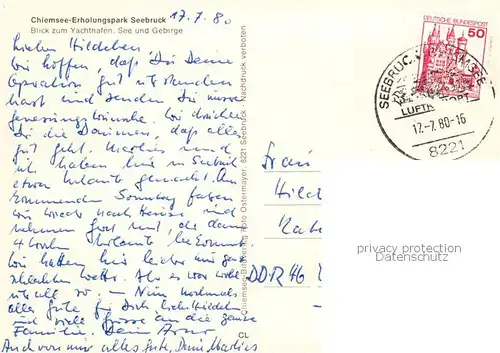 Chiemsee-Erholungspark Seebruck 17.7.80
Blick zum Yachthafen, See und Gebirge
Liebes Hildchen!
Wir hoffen, daß Du Deine
Operation gut überstanden
hast und senden Dir unsere
Genesungswünsche. Wir drücken
Dir die Daumen, daß alles
gut geht. und
ich haben hier in Seebruck
etwas Urlaub gemacht. Am
kommenden Sonntag fahren
wir wieder nach Hause und
nehmen mit, die dann
4 Wochen Urlaub bekommt.
Wir hatten hier leider nur ganz
schlechtes Wetter. Aber es war wohl
überall so. – Nun nochmals
alles Gute für Dich liebes Hildchen
und viele Grüsse an die ganze
Familie. Dein
Auch von mir alles Gute, Deine
Chiemsee-Bildverlag Foto Ostermayer, 8221 Seebruck Nachdruck verboten
CL
DEUTSCHE BUNDESPOST
50
SEEBRUCK, CHIEMSEE
LUFTK
17.-7.80-16
8221
Frau
Hild
Kat
DDR 46
privacy protection
Datenschutz